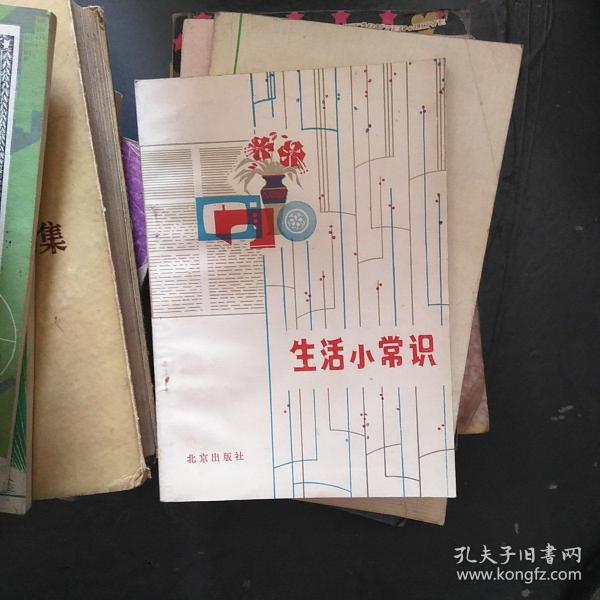 集
生活小常识
北京出版社
孔夫子旧书网
www.kongfz.com